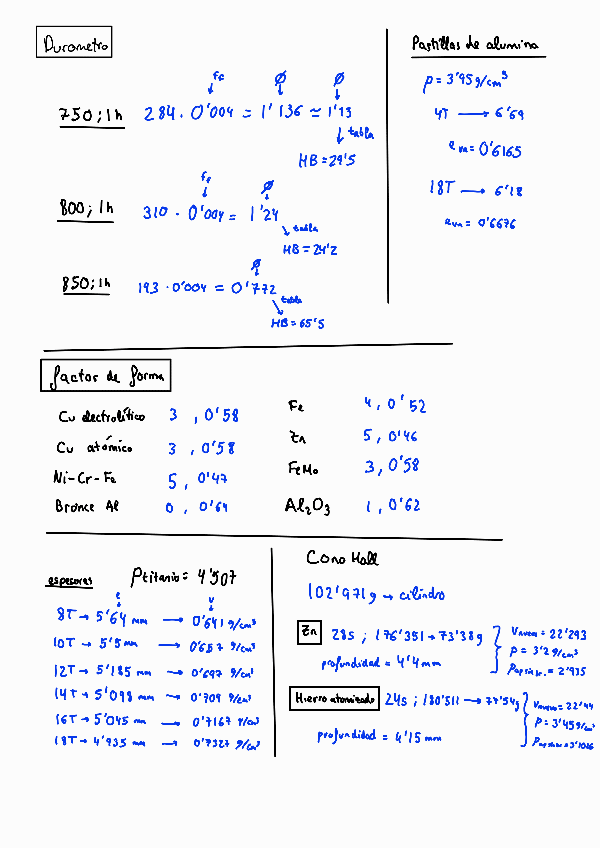 Durometro
fc ∅ ∅
750; 1h 284 · 0'004 = 1'136 ≃ 1'13
tabla
HB = 29'5
fc ∅
800; 1h 310 · 0'004 = 1'24
tabla
HB = 24'2
∅
850; 1h 193 · 0'004 = 0'772
tabla
HB = 65'5
Pastillas de alumina
ρ = 3'95 g/cm³
4T → 6'69
= 0'6165
18T → 6'18
= 0'6676
factor de forma
Cu electrolítico 3 , 0'58
Cu atómico 3 , 0'58
Ni-Cr-Fe 5 , 0'47
Bronce Al 0 , 0'64
Fe 4 , 0'52
Zn 5 , 0'46
FeMo 3, 0'58
Al₂O₃ 1 , 0'62
espesores ρtitanio = 4'507
e v
8T → 5'64 mm → 0'641 g/cm³
10T → 5'5 mm → 0'657 g/cm³
12T → 5'185 mm → 0'697 g/cm³
14T → 5'098 mm → 0'709 g/cm³
16T → 5'045 mm → 0'7167 g/cm³
18T → 4'935 mm → 0'7327 g/cm³
Cono Hall
102'971g → cilindro
Zn 28s ; 176'351 → 73'38g
profundidad = 4'4 mm
= 22'293
ρ = 3'2 g/cm³
= 2'935
Hierro atomizado 24s ; 180'511 → 77'54g
profundidad = 4'15 mm
= 22'44
ρ = 3'45 g/cm³